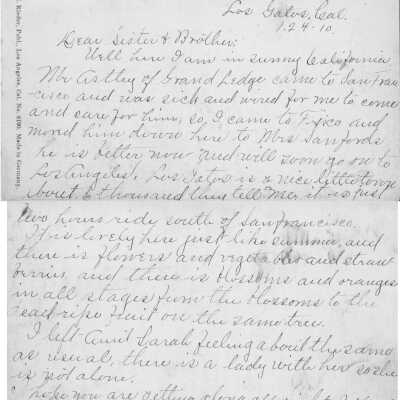 Los Gatos, Cal.
1.24-10.
Dear Sister & Brother;
Well here I am in sunny California
Mr Astley of Grand Ledge came to San Fran-
cisco and was sick and wired for me to come
and care for him, so, I came to Frisco and
moved him down here to Mrs Sanfords
he is better now and will soon go on to
Los Angeles. Los Gatos is a nice little town
about 6 thousand they tell me, it is just
two hours ride south of San Francisco.
It is lovely here just like summer, and
there is flowers and vegetables and straw
berries, and there is blossoms and oranges
in all stages from the blossoms to the
dead ripe fruit on the same tree.
I left Aunt Sarah feeling about the same
as usual, there is a lady with her so she
is not alone.
you are getting along all right
Rieder, Publ., Los Angeles, Cal. No. 4100. Made in Germany.